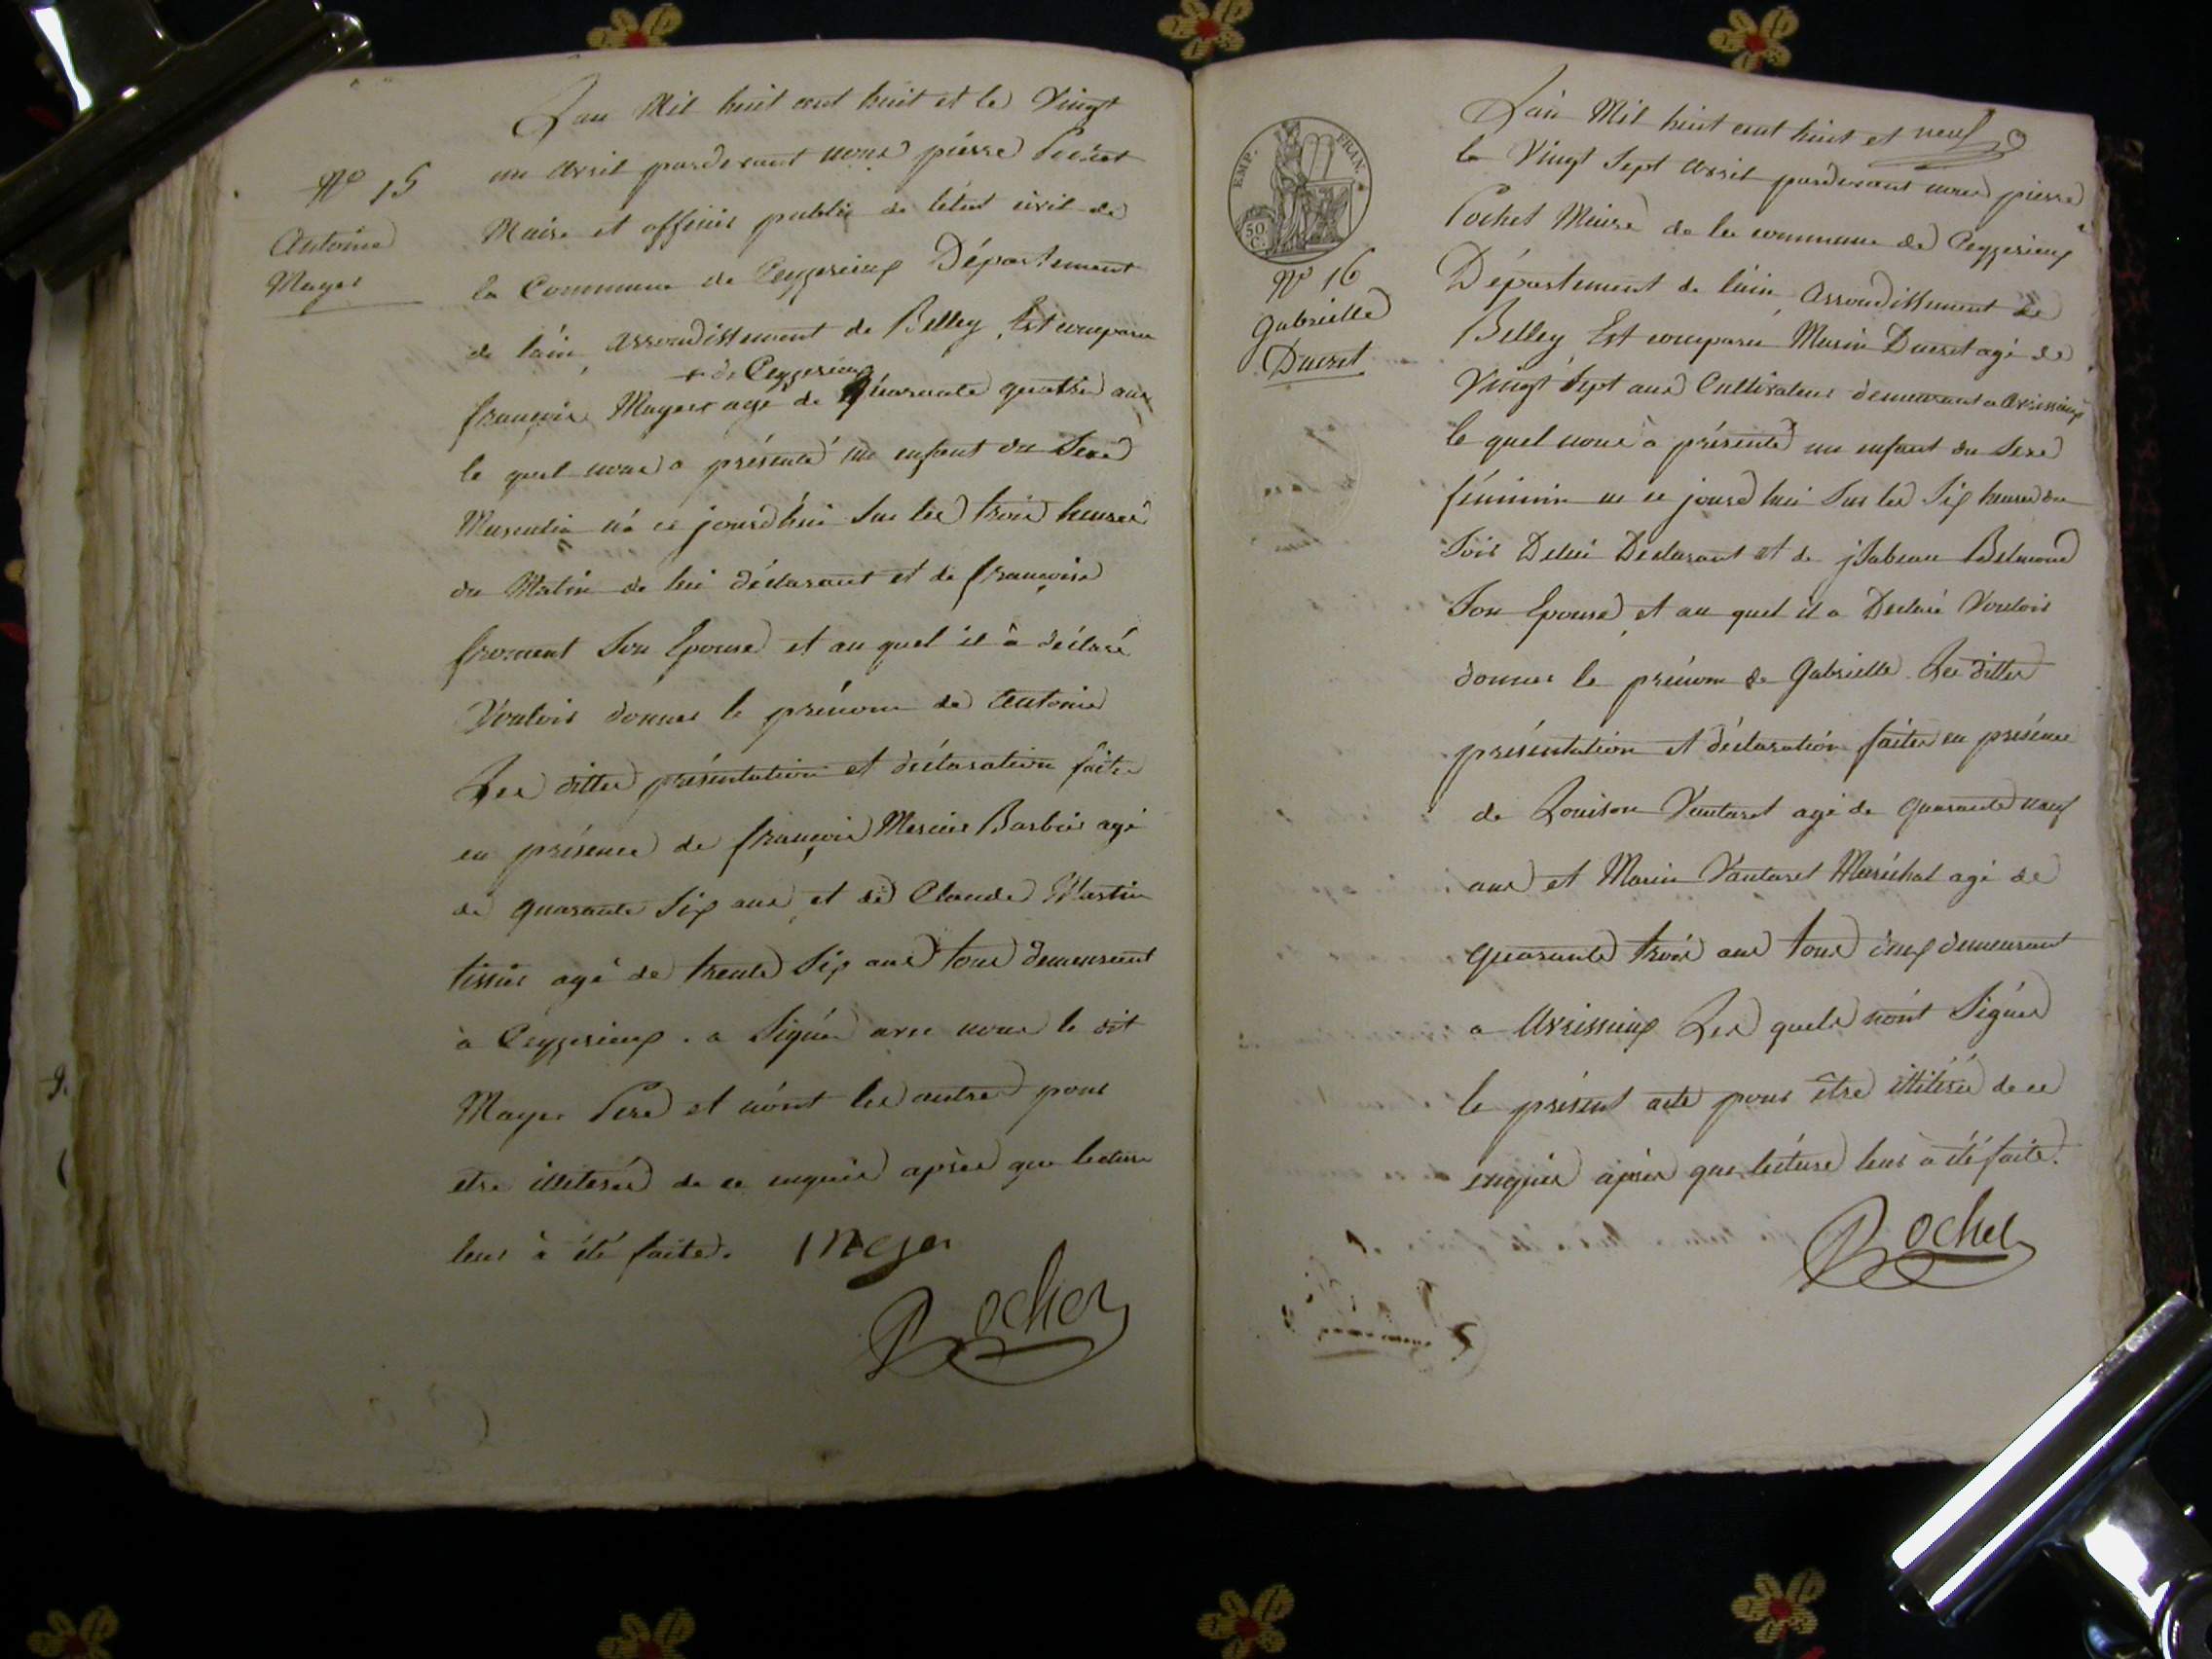 L'an Mil huit cent huit et le Vingt
un avril pardevant nous pierre Pochet
Maire et officier public de l'état civil de
la Commune de Ceyzerieux Département
de l'ain arrondissement de Belley Est comparu
+ de Ceyzerieux
françois Mayer + agé de Quarante quatre ans
le quel nous a présenté un enfant du Sexe
Masculin né ce jourd'hui Sur les trois heures
du Matin de lui déclarant et de françoise
froment Son Epouse et au quel il à déclaré
Vouloir donner le prénom de Antoine
Les dittes présentation et déclaration faite
en présence de françois Mercier Barbier agé
de quarante Six ans et de Claude Martin
tissier agé de trente Six ans tous demeurant
à Ceyzerieux . a Signé avec nous le dit
Mayer Pere et n'ont les autres pour
etre illiterés de ce enquis après que lecture
leur à été faite. Meyer
Pochet
N° 15
Antoine
Mayer
EMP. FRAN.
50 C.
N° 16
Gabrielle
Ducret
L'ain Mil huit cent huit et neuf
le Vingt Sept avril pardevant nous pierre
Pochet Maire de la commune de Ceyzerieux
Département de l'ain arrondissement de
Belley Est comparu Marin Ducret agé de
Vingt Sept ans Cultivateur demeurant a Avrissieux
le quel nous à présenté un enfant du Sexe
féminin né ce jourd'hui Sur les Six heures du
Soir De lui Déclarant et de jsabeau Belmond
Son Epouse et au quel il a Déclaré Vouloir
donner le prénom de Gabrielle Les dittes
présentation et déclaration faites en présence
de Louison Vautaret agé de quarante neuf
ans et Marin Vautaret Maréchal agé de
quarante trois ans tous deux demeurant
a Avrissieux Les quels n'ont Signés
le présent acte pour être illiterés de ce
enquis après que lecture leur à été faite.
Pochet